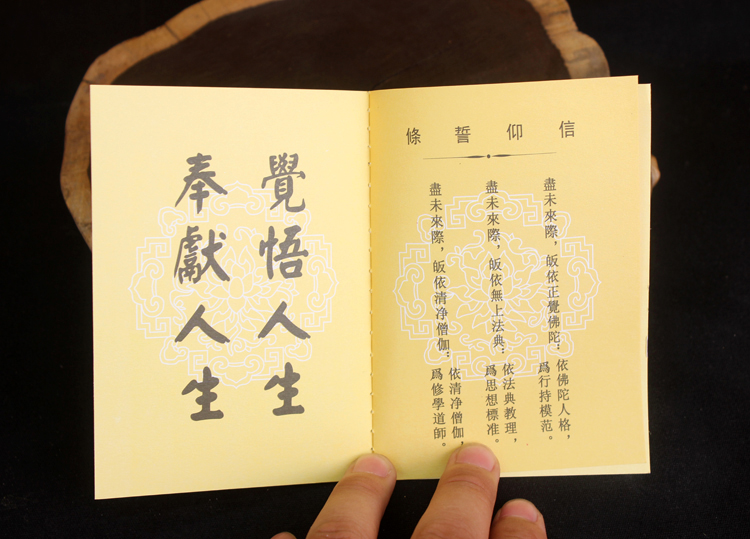 覺悟人生
奉獻人生
信仰誓條
盡未來際，皈依正覺佛陀：
依佛陀人格，
爲行持模范。
盡未來際，皈依無上法典：
依法典教理，
爲思想標准。
盡未來際，皈依清净僧伽：
依清净僧伽，
爲修學道師。